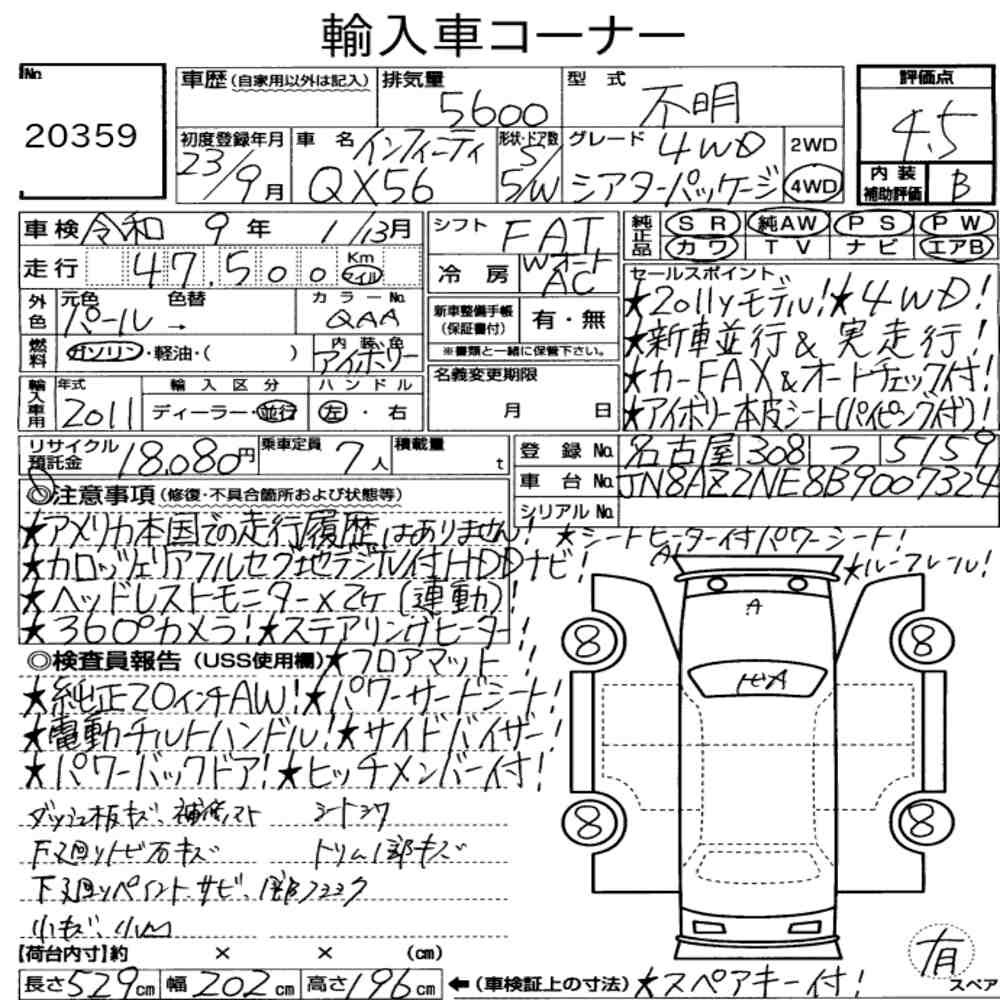 輸入車コーナー
No. 20359
車歴 (自家用以外は記入) 排気量 5600 型式 不明 評価点 4.5
初度登録年月 23/9月 車名 インフィニティ QX56 形状・ドア数 5/5/W グレード 4WD シアターパッケージ 2WD 4WD 内装補助評価 B
車検 令和 9年 1/13月 シフト FAT 純正品 SR 純AW PS PW
走行 47,500 Km マイル 冷房 WオートAC カワ TV ナビ エアB
外色 元色 パール → 色替 カラーNo. QAA 新車整備手帳(保証書付) 有・無
燃料 ガソリン・軽油・( ) 内装色 アイボリー ※書類と一緒に保管下さい。
輸入車用 年式 2011 輸入区分 ディーラー・並行 ハンドル 左・右 名義変更期限 月 日
セールスポイント
★2011yモデル!★4WD!
★新車並行&実走行!
★カーFAX&オートチェック付!
★アイボリー本皮シート(パイピング付)!
リサイクル預託金 18,080円 乗車定員 7人 積載量 t
登録No. 名古屋 308 つ 5159
車台No. JN8AZ2NE8B9007324
シリアルNo.
◎注意事項 (修復・不具合箇所および状態等)
★アメリカ本国での走行履歴はありません! ★シートヒーター付パワーシート!
★カロッツェリアフルセグ地デジル付HDDナビ! ★ルーフレール!
★ヘッドレストモニター×2ケ(連動)!
★360°カメラ!★ステアリングヒーター!
◎検査員報告 (USS使用欄) ★フロアマット!
★純正20インチAW!★パワーサードシート!
★電動チルトハンドル!★サイドバイザー!
★パワーバックドア!★ヒッチメンバー付!
シートシワ
トリム1部キズ
小キズ、小凹
A
A
8 8
8 8
【荷台内寸】約 × × (cm)
長さ529cm 幅202cm 高さ196cm ←(車検証上の寸法) ★スペアキー付! 有 スペア